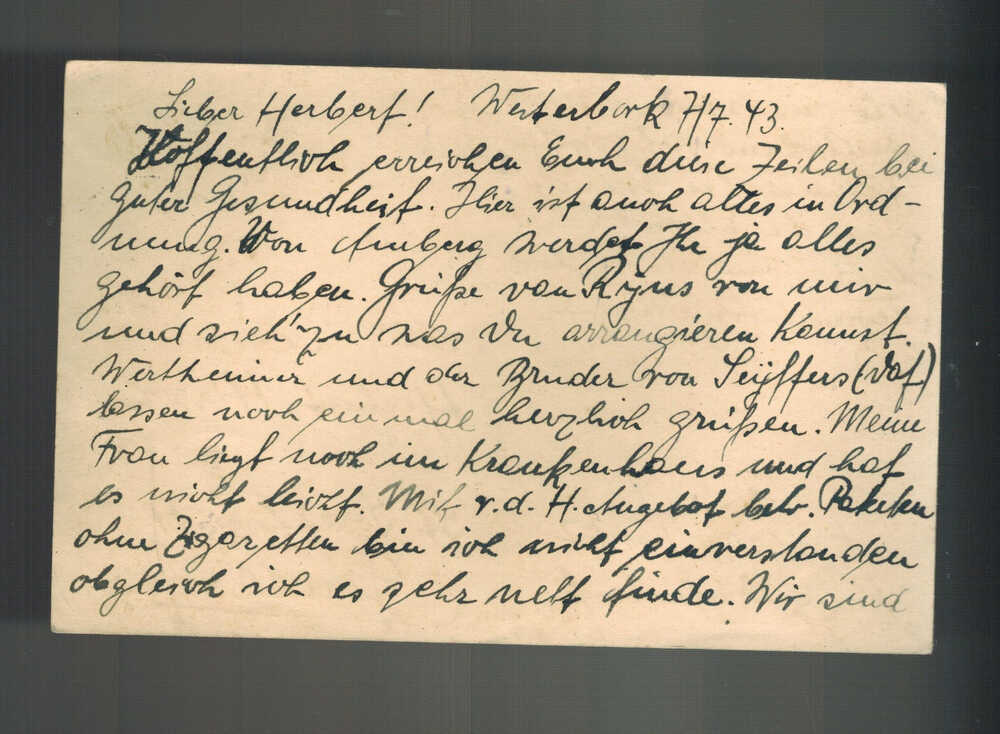 Lieber Herbert! Westerbork 7/7.43.
Hoffentlich erreichen Euch diese Zeilen bei
guter Gesundheit. Hier ist auch alles in Ord-
nung. Von Amberg werdet Ihr ja alles
gehört haben. Grüße van Ryns von mir
und sieh' zu was Du arrangieren kannst.
Wertheimer und der Bruder von Seyffers
lassen noch einmal herzlich grüßen. Meine
Frau liegt noch im Krankenhaus und hat
es nicht leicht. Mit v.d. H. Angebot betr. Paketen
ohne Zigaretten bin ich nicht einverstanden
obgleich ich es sehr nett finde. Wir sind